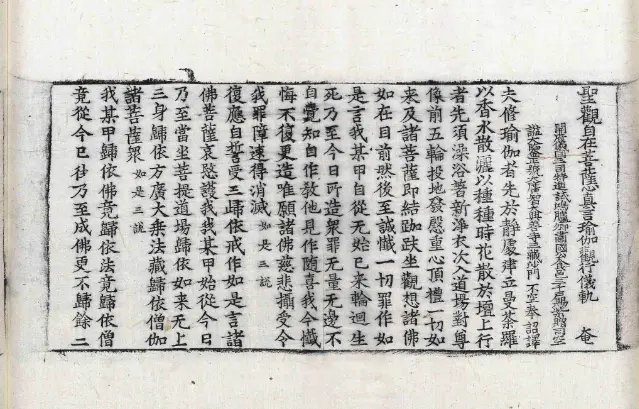 聖觀自在菩薩心真言瑜伽觀行儀軌 菴
開府儀同三司特進試鴻臚卿肅國公食邑三千戶賜紫贈司空
謚大鑒正號大廣智大興善寺三藏沙門不空奉 詔譯
夫修瑜伽者先於靜處建立曼荼羅
以香水散灑以種種時花散於壇上行
者先須澡浴著新淨衣次入道場對尊
像前五輪投地發慇重心頂禮一切如
来及諸菩薩即結跏趺坐觀想諸佛
如在目前然後至誠懺一切罪作如
是言我某甲自從无始已來輪迴生
死乃至今日所造衆罪无量无邊不
自覺知自作教他見作隨喜我今懺
悔不復更造唯願諸佛慈悲攝受令
我罪障速得消滅 如是三說
復應自誓受三歸依戒作如是言諸
佛菩薩哀愍護我我某甲始從今日
乃至當坐菩提道場歸依如来无上
三身歸依方廣大乗法藏歸依僧伽
諸菩薩衆 如是三說
我某甲歸依佛竟歸依法竟歸依僧
竟從今已徃乃至成佛更不歸餘二